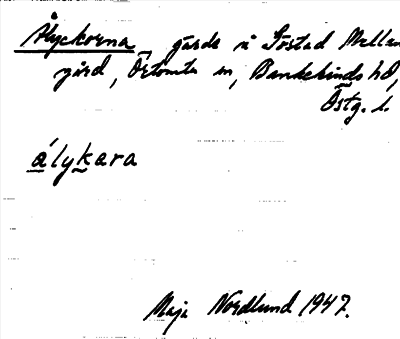 Ålyckorna gärde i Törstad Mellan
gård, Örtomta sn, Bankekinds hd,
Östg. l.
ályka̠ra
Maja Nordlund 1947.